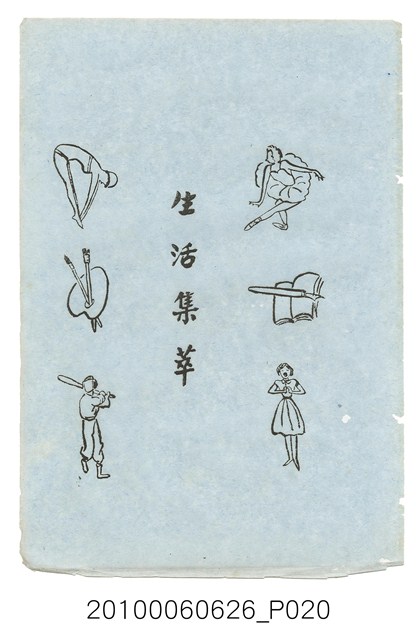 生活集萃
20100060626_P020